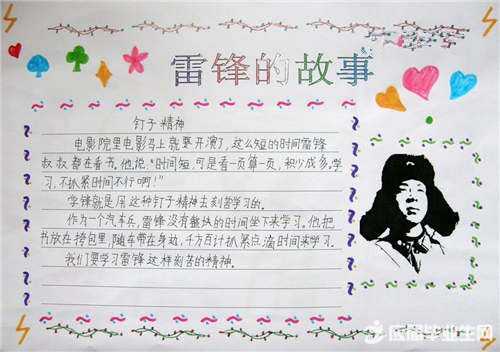 雷锋的故事
钉子精神
电影院里电影马上就要开演了,这么短的时间雷锋
叔叔都在看书。他说:"时间短,可是看一页算一页,积少成多。学
习,不抓紧时间不行啊!"
雷锋就是用这种钉子精神去刻苦学习的。
作为一个汽车兵,雷锋没有整块的时间坐下来学习。他把
书放在挎包里,随车带在身边,千方百计抓紧点滴时间来学习。
我们要学习雷锋这样刻苦的精神。
应届毕业生网